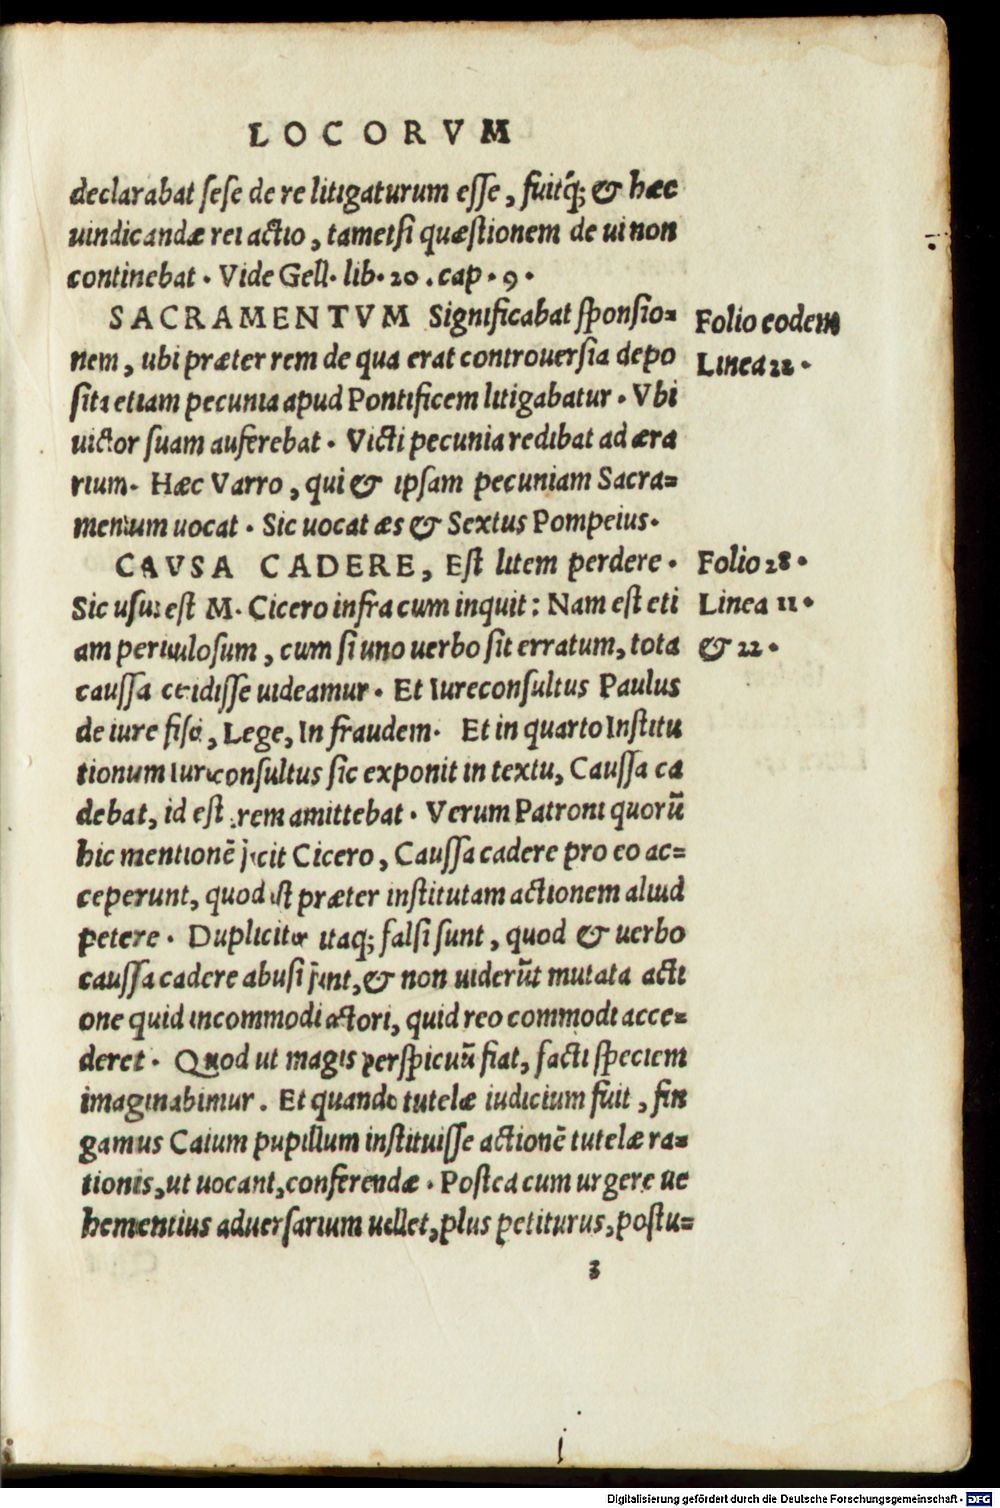 LOCORVM
declarabat sese de re litigaturum esse, fuitq́; & hæc
uindicandæ rei actio, tametsi quæstionem de ui non
continebat. Vide Gell. lib. 20. cap. 9.
SACRAMENTVM Significabat sponsio=
nem, ubi præter rem de qua erat controuersia depo
sita etiam pecunia apud Pontificem litigabatur. Vbi
uictor suam auferebat. Victi pecunia redibat ad æra
rium. Hæc Varro, qui & ipsam pecuniam Sacra=
mentum uocat. Sic uocat æs & Sextus Pompeius.
Folio eodem
Linea 22.
CAVSA CADERE, Est litem perdere.
Sic usus est M. Cicero infra cum inquit: Nam est eti
am periculosum, cum si uno uerbo sit erratum, tota
caussa cecidisse uideamur. Et Iureconsultus Paulus
de iure fisci, Lege, In fraudem. Et in quarto Institu
tionum Iureconsultus sic exponit in textu, Caussa ca
debat, id est rem amittebat. Verum Patroni quorũ
hic mentionẽ facit Cicero, Caussa cadere pro eo ac=
ceperunt, quod est præter institutam actionem aliud
petere. Dupliciter itaq; falsi sunt, quod & uerbo
caussa cadere abusi sint, & non uiderũt mutata acti
one quid incommodi actori, quid reo commodi acce=
deret. Quod ut magis perspicuũ fiat, facti speciem
imaginabimur. Et quando tutelæ iudicium fuit, fin
gamus Caium pupillum instituisse actionẽ tutelæ ra=
tionis, ut uocant, conferendæ. Postea cum urgere ue
hementius aduersarium uellet, plus petiturus, postu=
Folio 28.
Linea 11.
& 22.
3
Digitalisierung gefördert durch die Deutsche Forschungsgemeinschaft - DFG